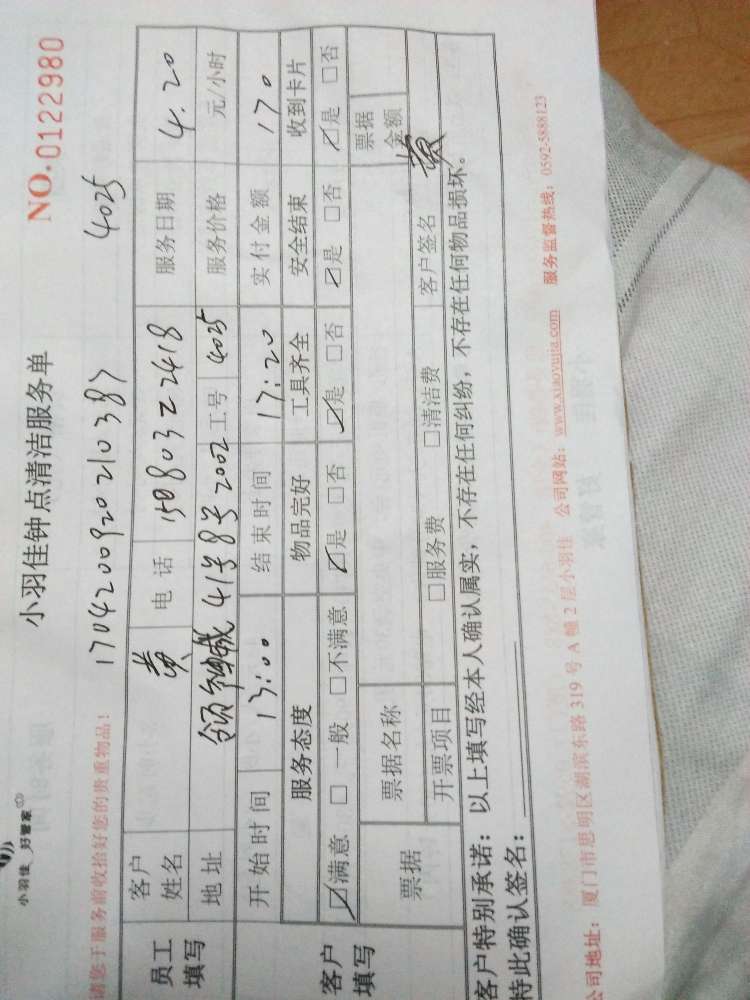 小羽佳 好管家
小羽佳钟点清洁服务单
NO.0122980
请您于服务前收拾好您的贵重物品!
170420092021038 4025
员工填写 客户姓名 黄 电话 服务日期 4.20
地址 41号8号2002 工号 4025 服务价格 元/小时
开始时间 13:00 结束时间 17:20 实付金额 170
客户填写 服务态度 物品完好 工具齐全 安全结束 收到卡片
☑满意 □一般 □不满意 ☑是 □否 ☑是 □否 ☑是 □否 ☑是 □否
票据 票据名称 票据金额
开票项目 □服务费 □清洁费 客户签名 黄
客户特别承诺:以上填写经本人确认属实,不存在任何纠纷,不存在任何物品损坏。
特此确认签名:
公司地址:厦门市思明区湖滨东路 319 号 A 幢 2 层小羽佳 公司网站:www.xiaoyujia.com 服务监督热线:0592-5888123